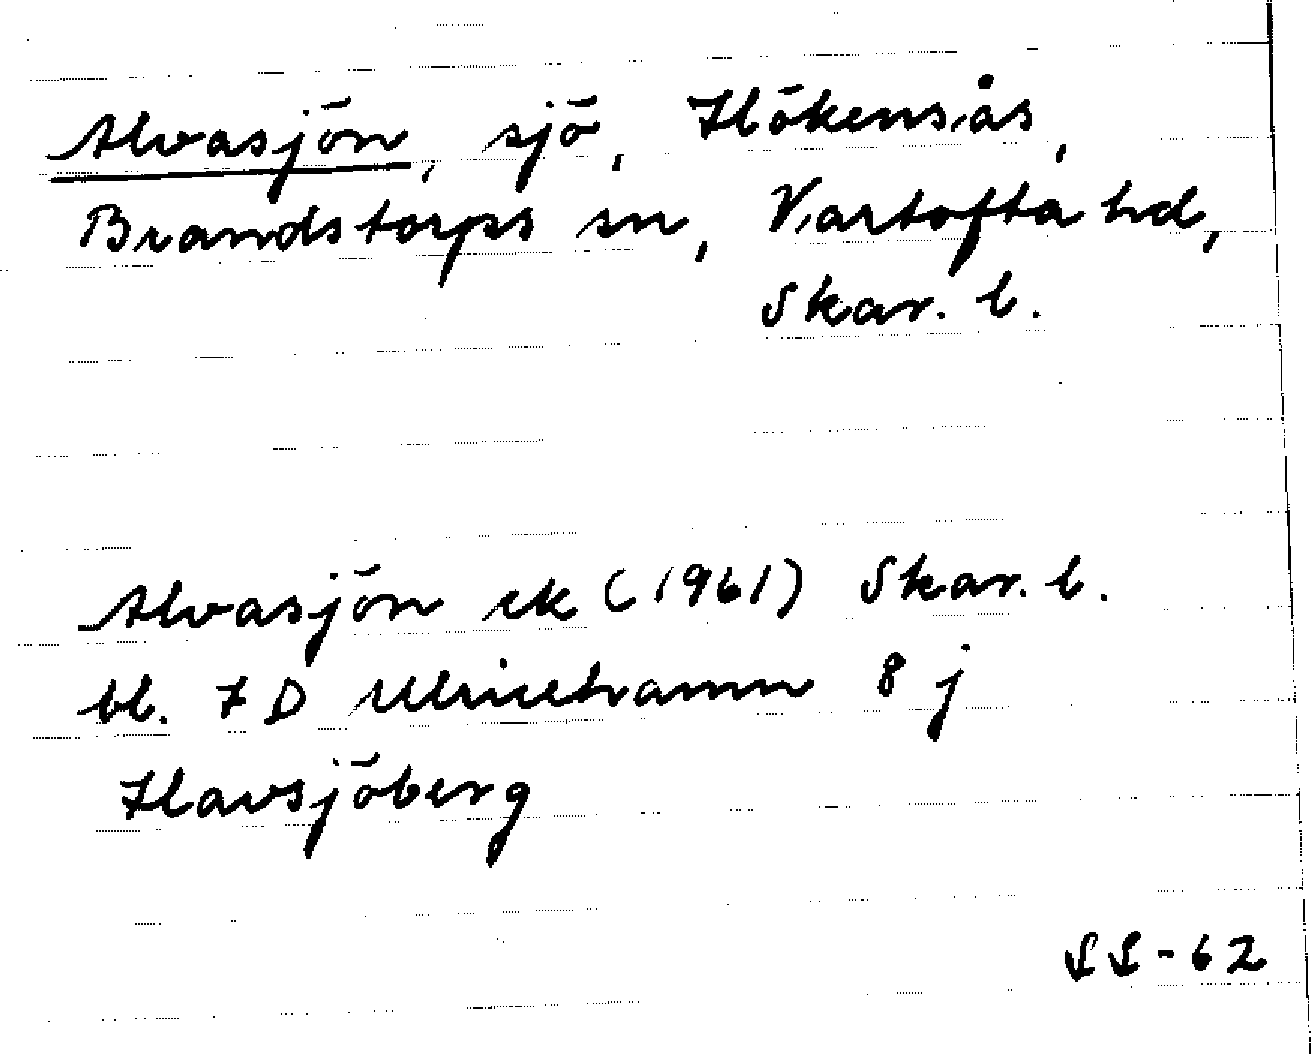 Alvasjön, sjö, Hökensås,
Brandstorps sn, Vartofta hd,
Skar. l.
Alvasjön ek (1961) Skar. l.
bl. 7 D Ulricehamn 8 j
Havsjöberg
SS-62